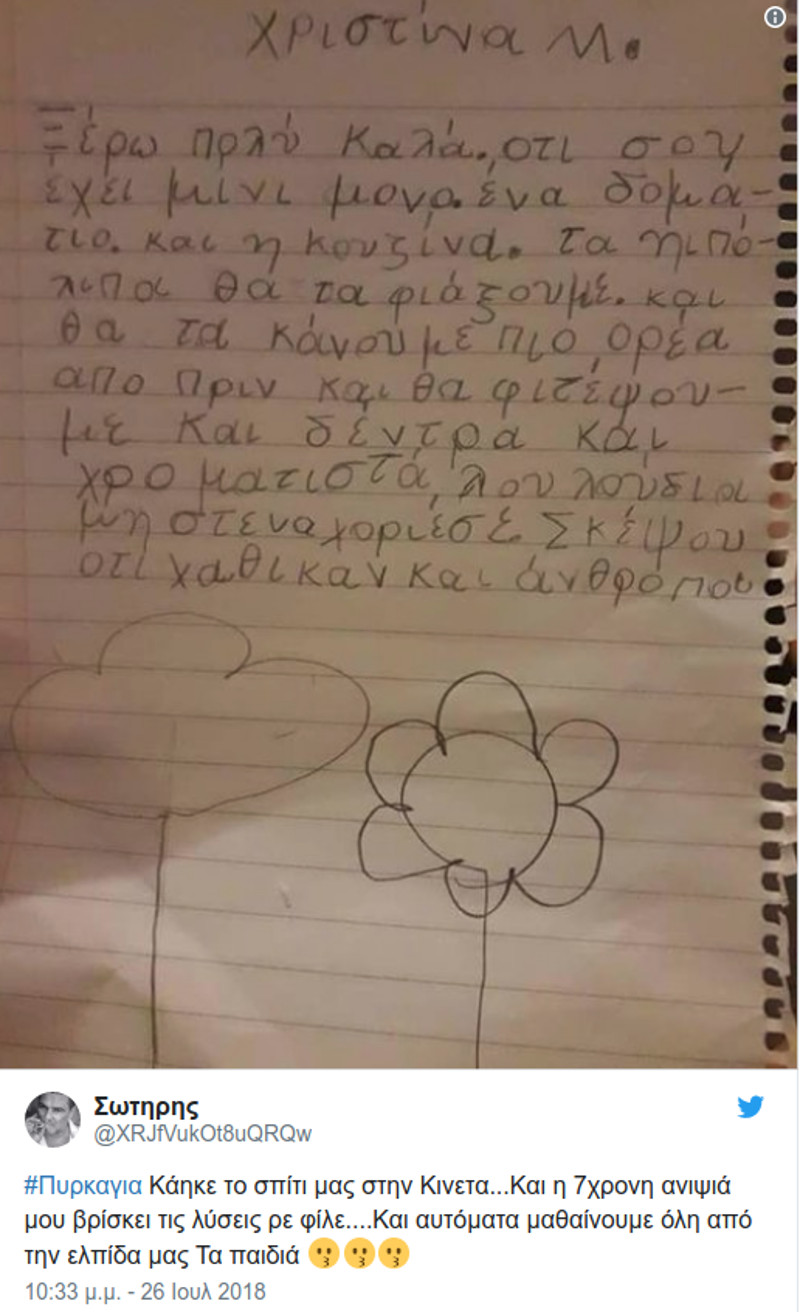 Χριστίνα Μ.
Ξέρω πολύ καλά. οτι σου
έχει μίνι μονο. ένα δομα-
τιο. και η κουζίνα. τα ηιπό-
λιπα θα τα φιάξουμε. και
θα τα κάνουμε πιο ορέα
απο πριν και θα φιτέψου-
με και δέντρα και
χροματιστά λουλούδια
μη στεναχοριέσε Σκέψου
οτι χαθικαν και άνθρόποι
Σωτηρης
@XRJfVukOt8uQRQw
#Πυρκαγια Κάηκε το σπίτι μας στην Κινετα...Και η 7χρονη ανιψιά
μου βρίσκει τις λύσεις ρε φίλε....Και αυτόματα μαθαίνουμε όλη από
την ελπίδα μας Τα παιδιά 😗😗😗
10:33 μ.μ. - 26 Ιουλ 2018